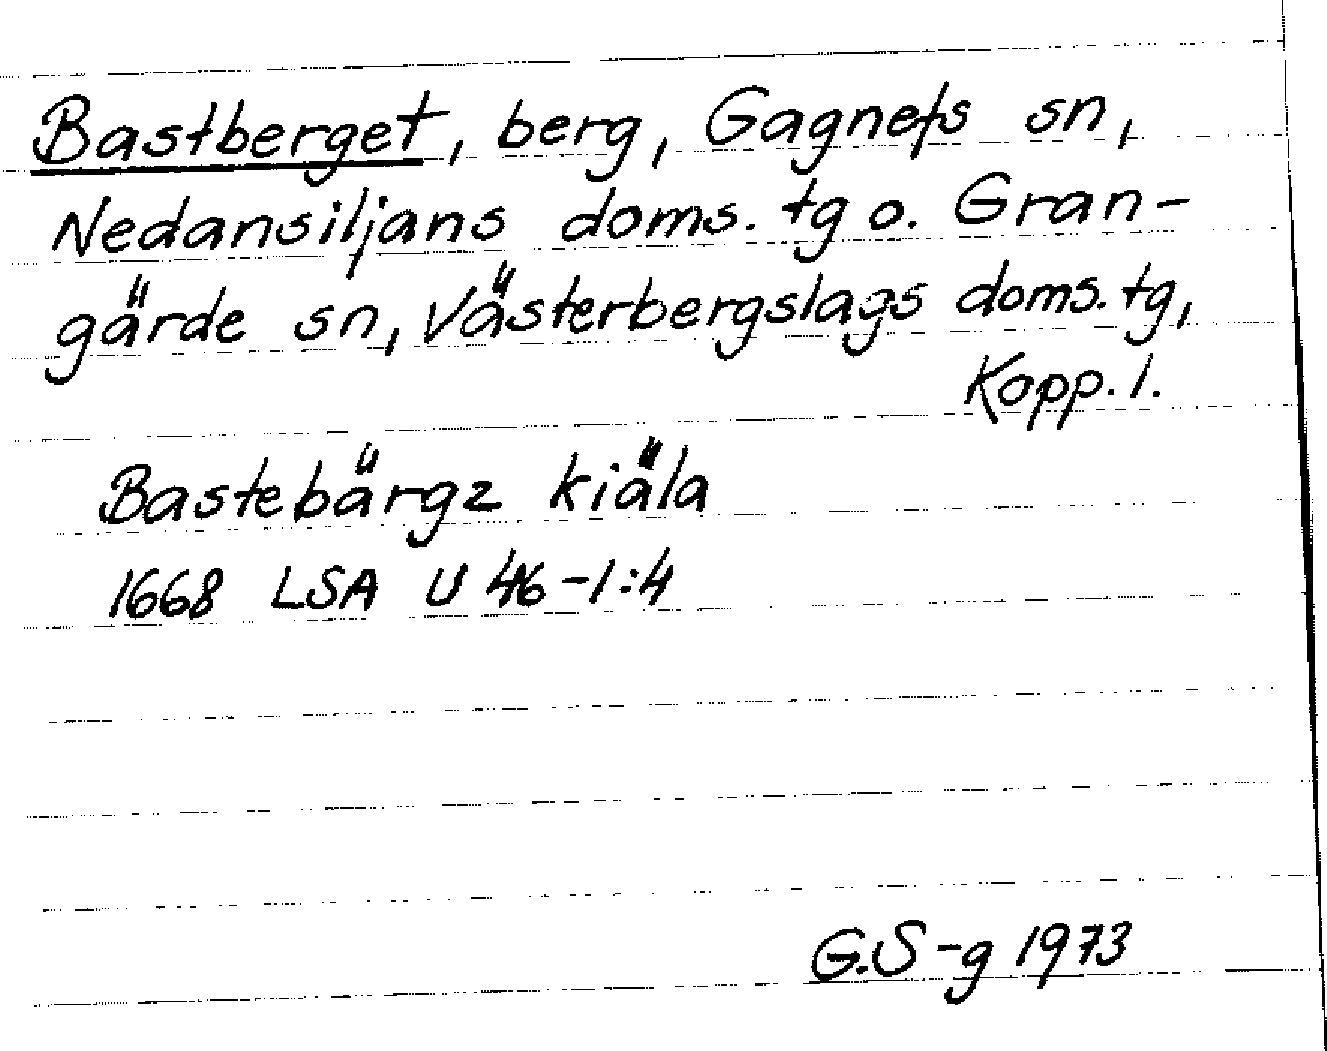 Bastberget, berg, Gagnefs sn,
Nedansiljans doms. tg o. Gran-
gärde sn, Västerbergslags doms. tg,
Kopp. l.
Bastebärgz kiäla
1668 LSA U 46-1:4
G.S-g 1973